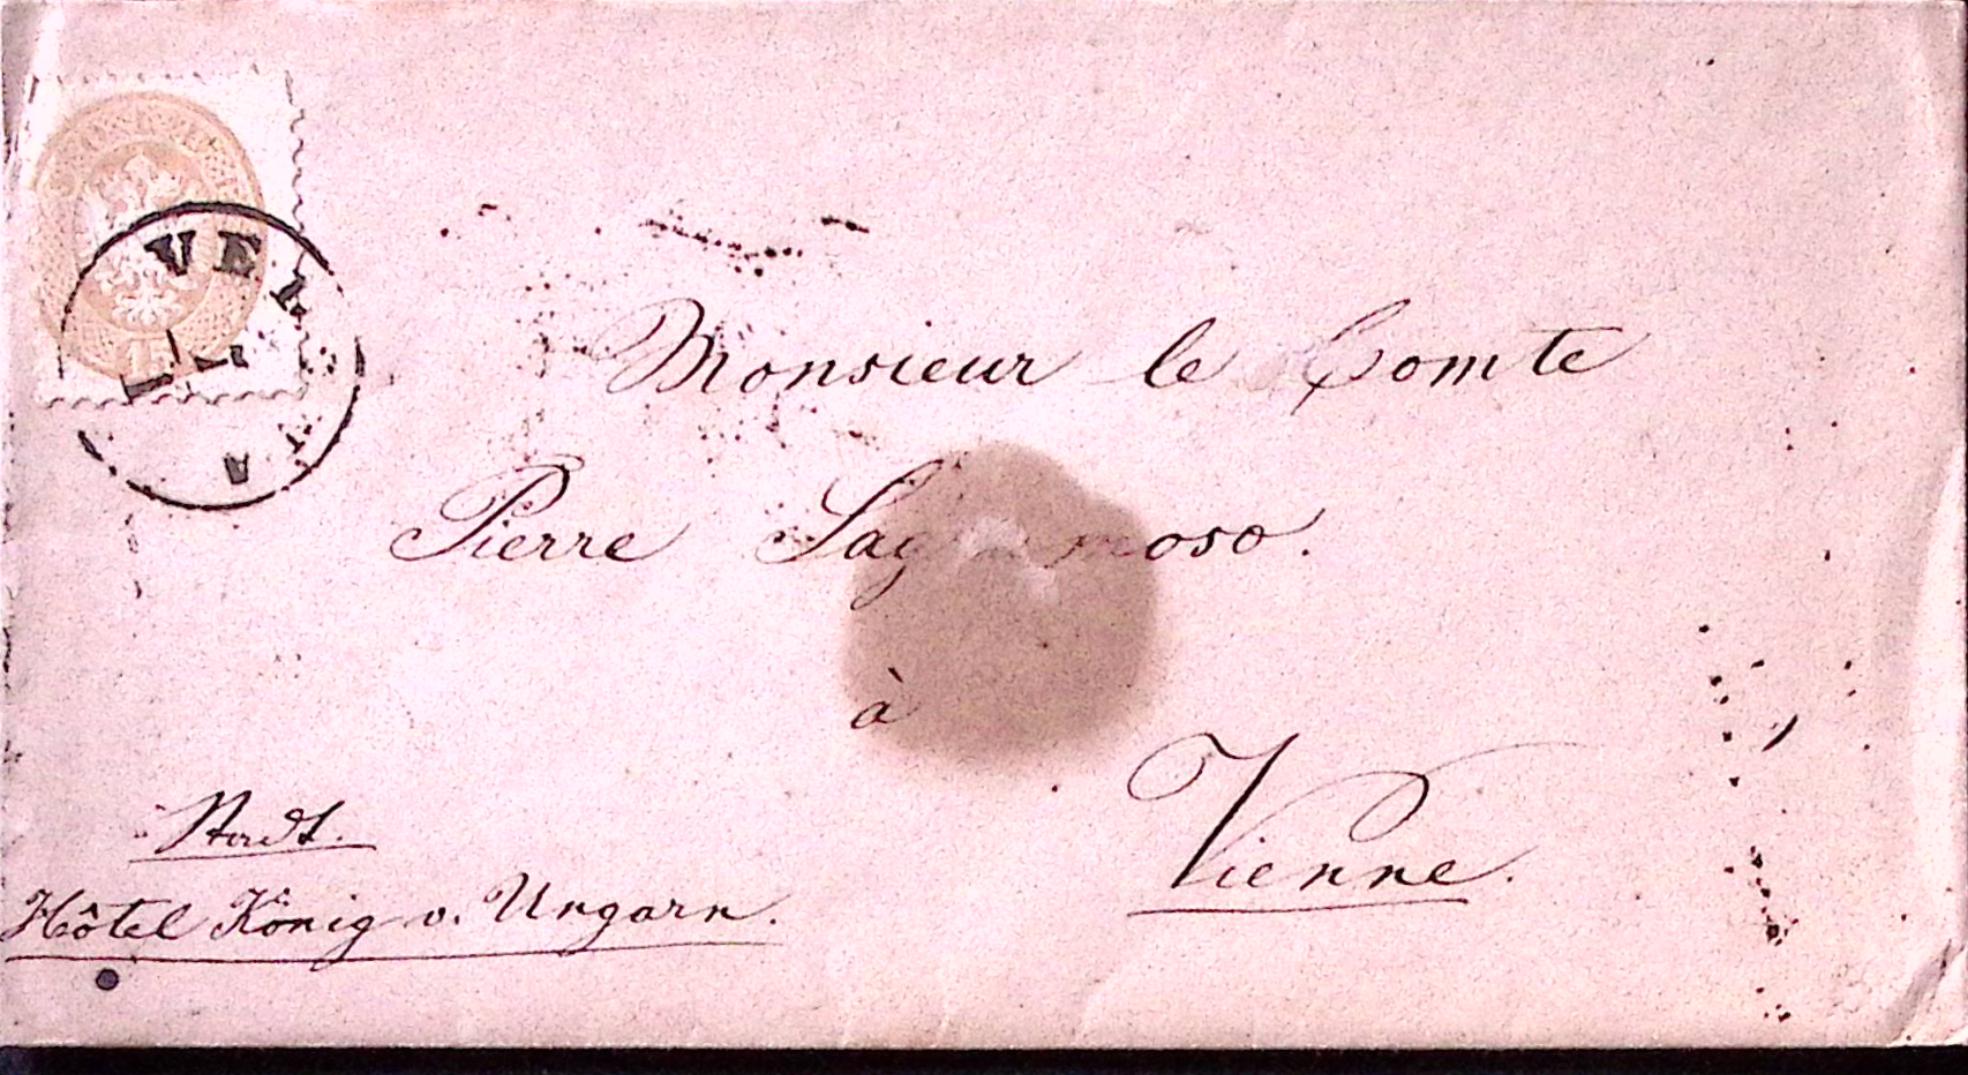 15
VE
Monsieur le Comte
Pierre Sagramoso.
à
Vienne.
Stadt.
Hôtel König v. Ungarn.